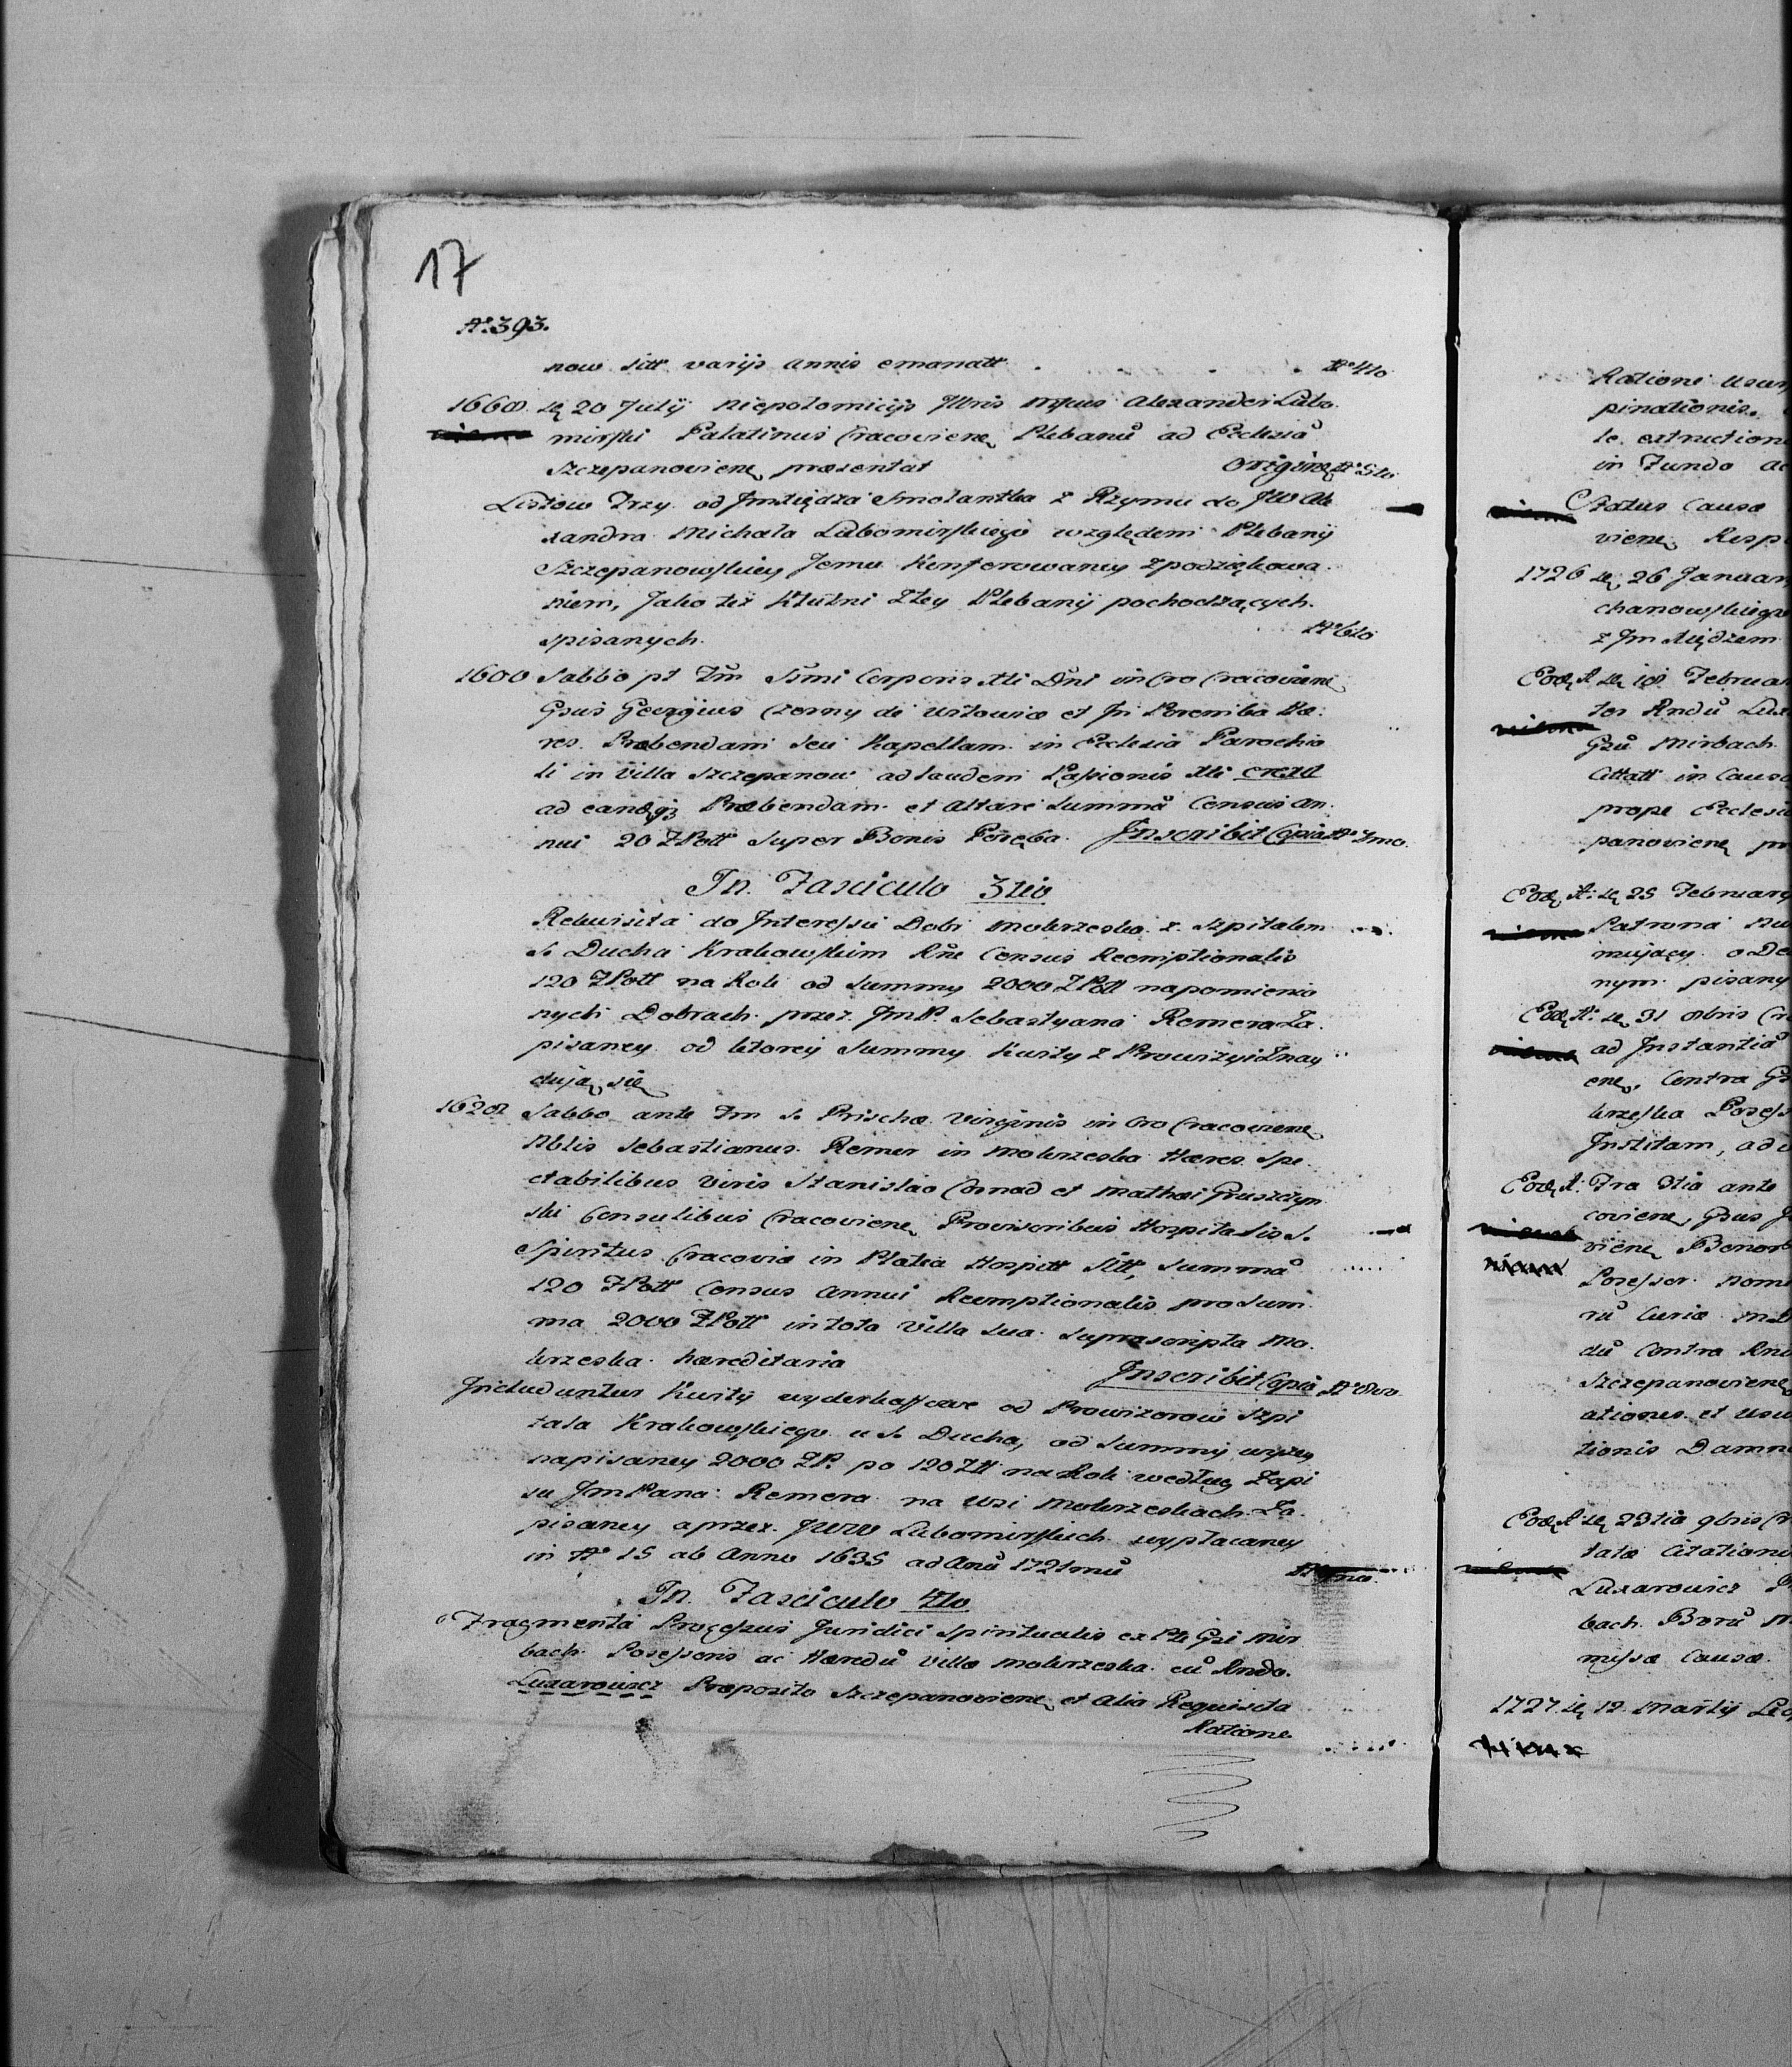 17
No 393.
now sitt varijs annis emanatt No 4to
1668. die 20 July Niepolomicijs Illris Mgnus Alexander Lubo
mirski Palatinus Cracoviene Plebanū ad Ecclesiā
Szczepanoviene praesentat Origine No 5to
Listow Trzy od Jmxiędza Smolantka z Rzymu do JW Ale
xandra Michała Lubomirskiego względem Plebanij
Szczepanowskiey Jemu Konferowaney z podziękowa
niem, Jako też Kłutni z tey Plebanij pochodzących
spisanych. No 6to
1600 Sabbo pt Fm Ssmi Corporis Xti Dni in Cro Cracoviene
Gsus Georgius Czerny de Witowice et in Poremba Hæ
res. Præbendam seu Kapellam in Ecclesia Parochia
li in Villa Szczepanow ad laudem Passionis Xti erexit
ad eandqz Præbendam et altare Summā Census an
nui 20 ZPolt super Bonis Poręba. Inscribit Copia No 7mo.
In Fasciculo 3tio
Rekwisita do Interessu Dobr Mokrzeska z Szpitalem
S. Ducha Krakowskim Rne Census Reemptionalis
120 ZPolt na Rok od Summy 2000 ZPolt na pomienio
nych Dobrach przez JmP. Sebastyana Remera Za
pisaney od ktorey Summy Kwity z Prowizyi Znay
dują się
1628 Sabbo ante Fm S. Priscæ Virginis in Cro Cracoviene
Nblis Sebastianus Remer in Mokrzeska Hæres Spe
ctabilibus Viris Stanislao Cornad et Mathæi Pruszczyn
ski Consulibus Cracoviene Provisoribus Hospitalis S.
Spiritus Cracoviæ in Platea Hospitt Sitt, Summā
120 ZPolt Census Annui Reemptionalis pro Sum
ma 2000 ZPolt in tota Villa sua suprascripta Mo
krzeska hæreditaria Inscribit Copia No 8vo
Includuntur Kwity wyderkaffowe od Prowizorow Szpi
tala Krakowskiego u S. Ducha, od Summy wyżey
napisaney 2000 ZP. po 120 Ztt na Rok według Zapi
su JmPana Remera na Wsi Mokrzeskach Za
pisaney a przez JWW Lubomirskich wypłacaney
in No 15 ab Anno 1635 ad Anū 1721mū
In Fasciculo 4to
Fragmenta Processus Juridici Spiritualis ex Pte Gsi Mir
bach Possessoris ac Hæredū villæ Mokrzeska cū Rndo.
Luzarowicz Præposito Szczepanoviene et alia Requisita
Ratione
Ratione usur
pinationis.
le extruction
in Fundo ac
Status Causæ
viene Resp
1726 die 26 Januar
chanowskiego
z Jm Xiędzem
Eode A. die 18 Februar
tor Rndū Lux
Gsū Mirbach
Cittatt in Causa
prope Ecclesi
panoviene
Eode A. die 25 February
Patrona
mujący o De
nym pisany
Eode A. die 31 8bris Cr
ad Instantiā
ene, Contra Gs
krzeska Posess
Institam, ad
Eode A. Fra 3tia ante
coviene, Gsus
viene Bonor
Posessor nom
rū Curiæ
dū Contra Rnd
Szczepanoviene
ationes et usu
tionis Damn
Eode A. die 23tia 9bris Cr
tatæ Citationi
Luxarowicz
bach Bonū M
missæ Causæ.
1727. die 12 Martij